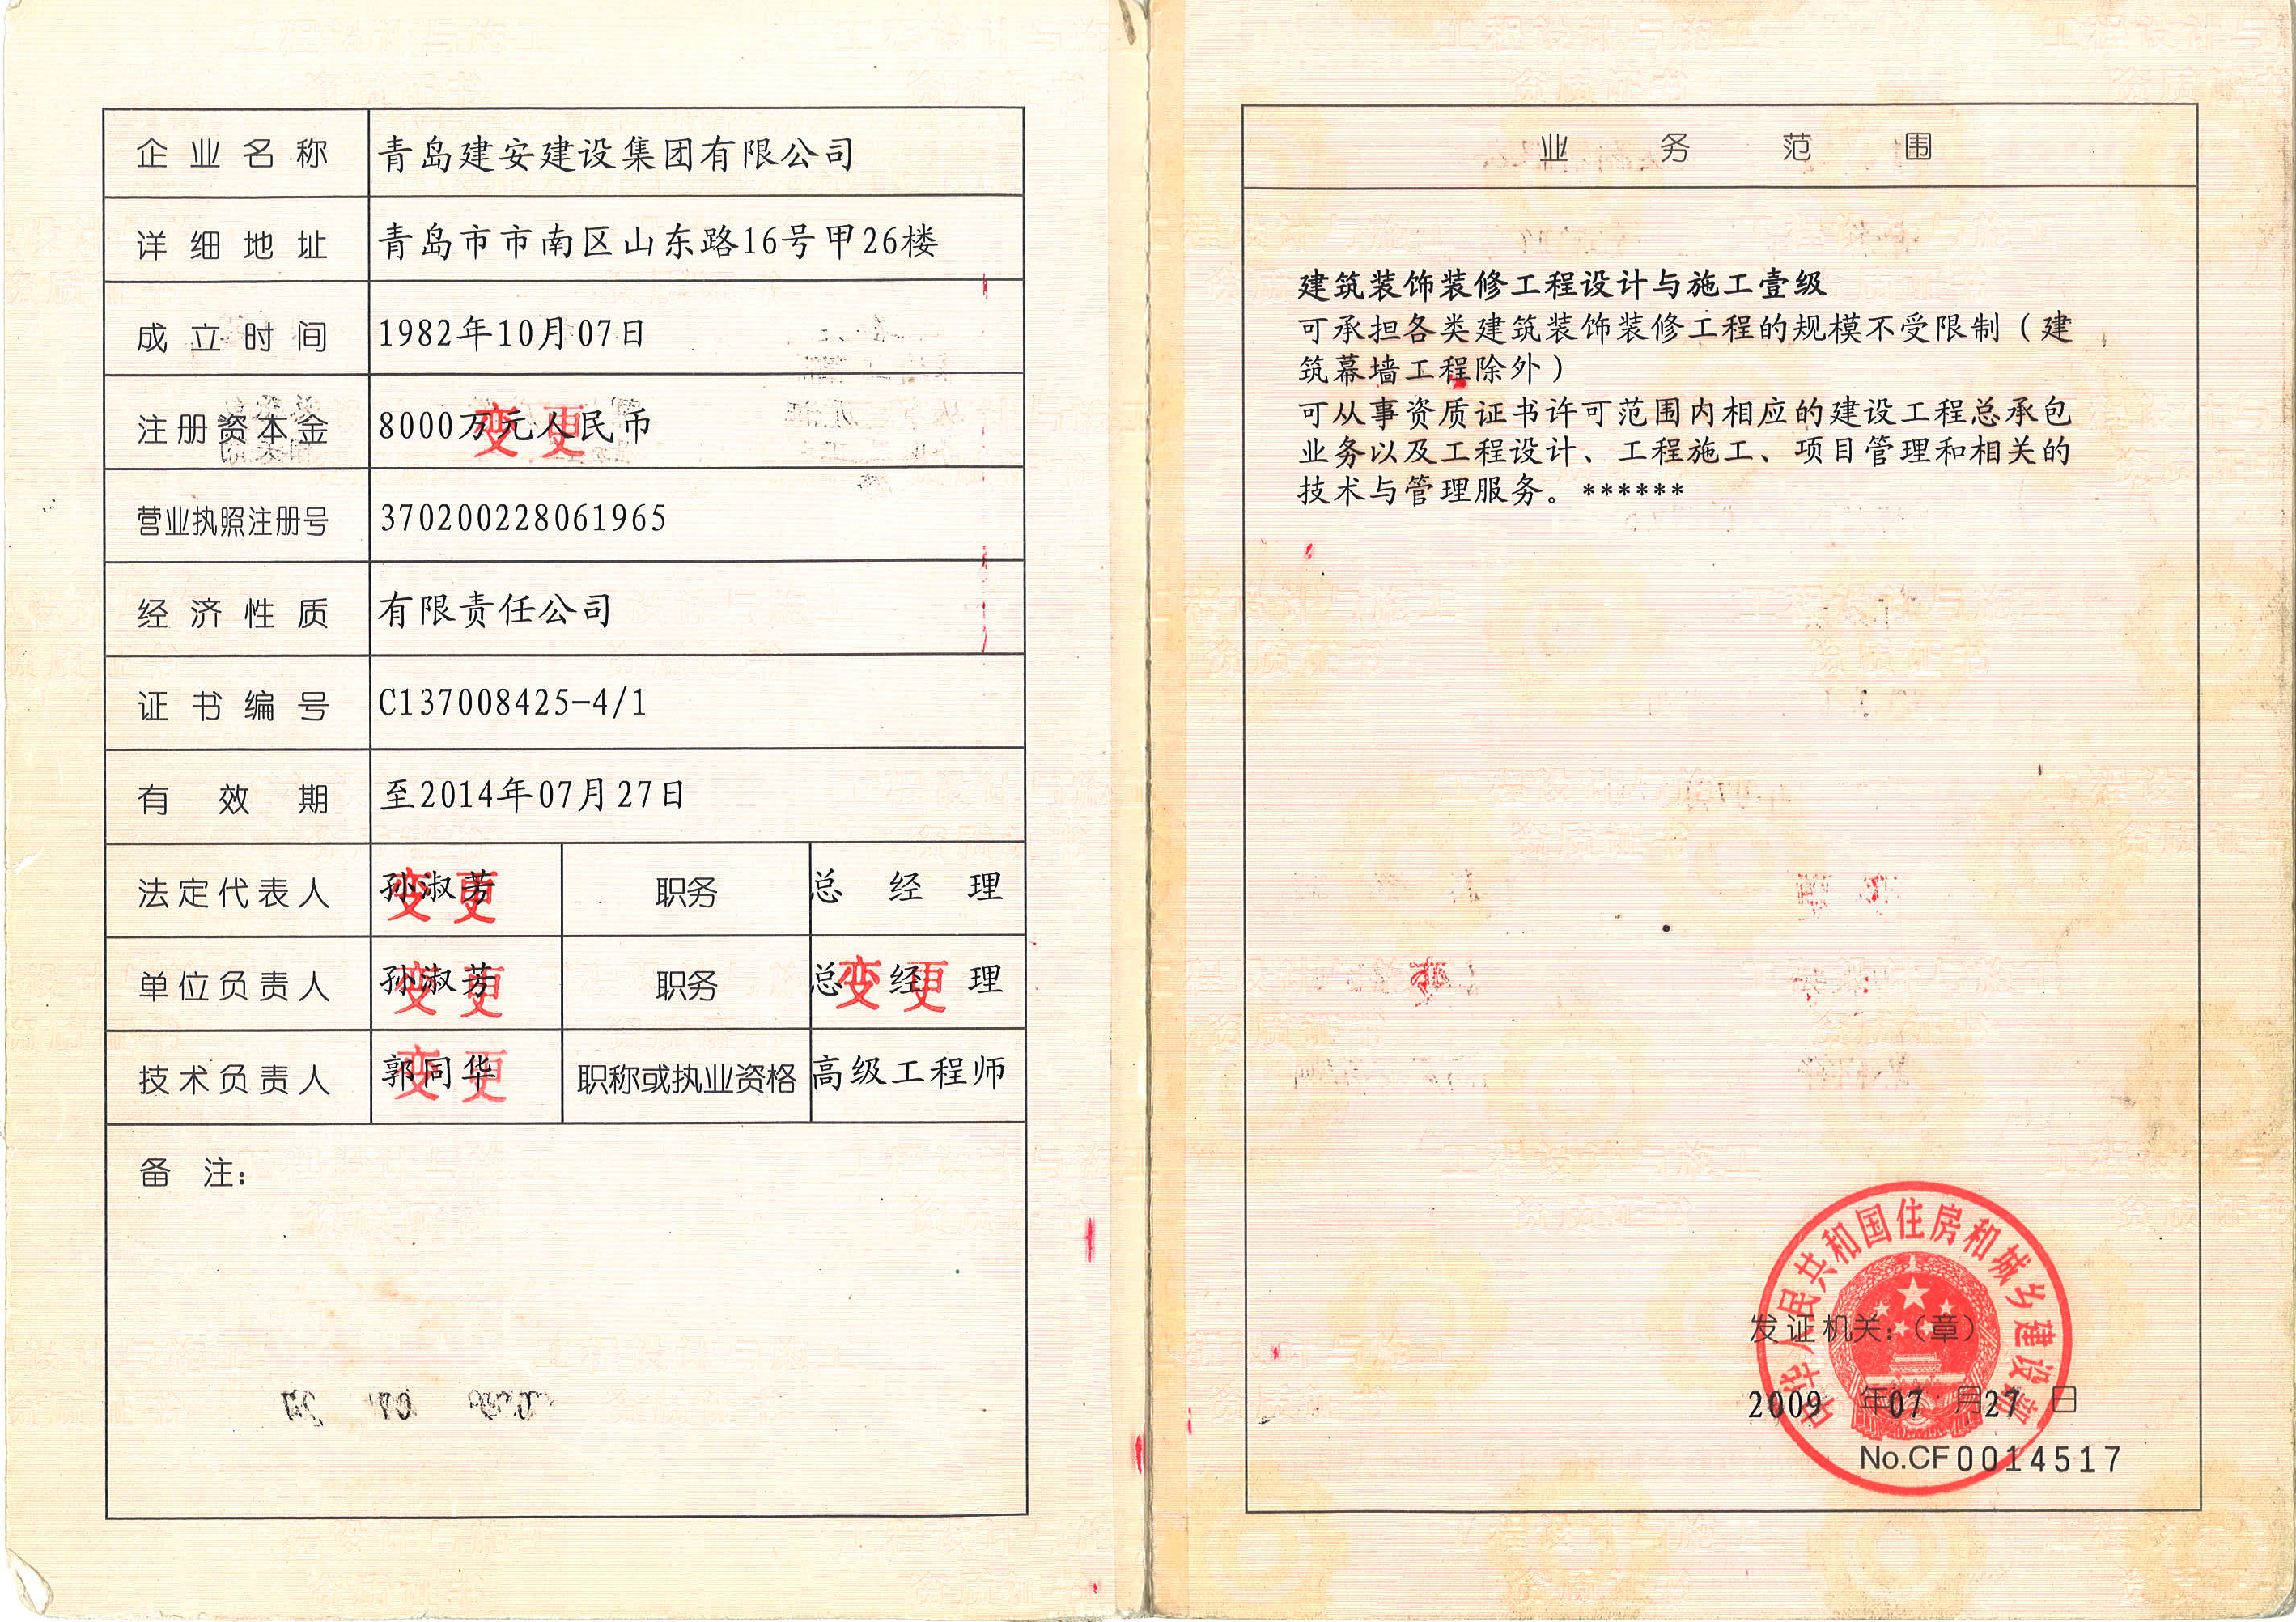 企业名称 青岛建安建设集团有限公司
详细地址 青岛市市南区山东路16号甲26楼
成立时间 1982年10月07日
注册资本金 8000万元人民币 变更
营业执照注册号 370200228061965
经济性质 有限责任公司
证书编号 C137008425-4/1
有效期 至2014年07月27日
法定代表人 孙淑芳 变更 职务 总经理
单位负责人 孙淑芳 变更 职务 总经理 变更
技术负责人 郭同华 变更 职称或执业资格 高级工程师
备注：
业务范围
建筑装饰装修工程设计与施工壹级
可承担各类建筑装饰装修工程的规模不受限制（建
筑幕墙工程除外）
可从事资质证书许可范围内相应的建设工程总承包
业务以及工程设计、工程施工、项目管理和相关的
技术与管理服务。******
中华人民共和国住房和城乡建设部
发证机关：（章）
2009年07月27日
No.CF0014517
工程设计与施工
资质证书